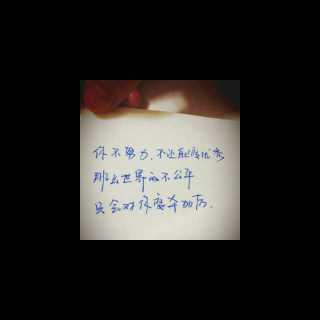 你不努力,不让自己优秀
那么世界的不公平
只会对你变本加厉.